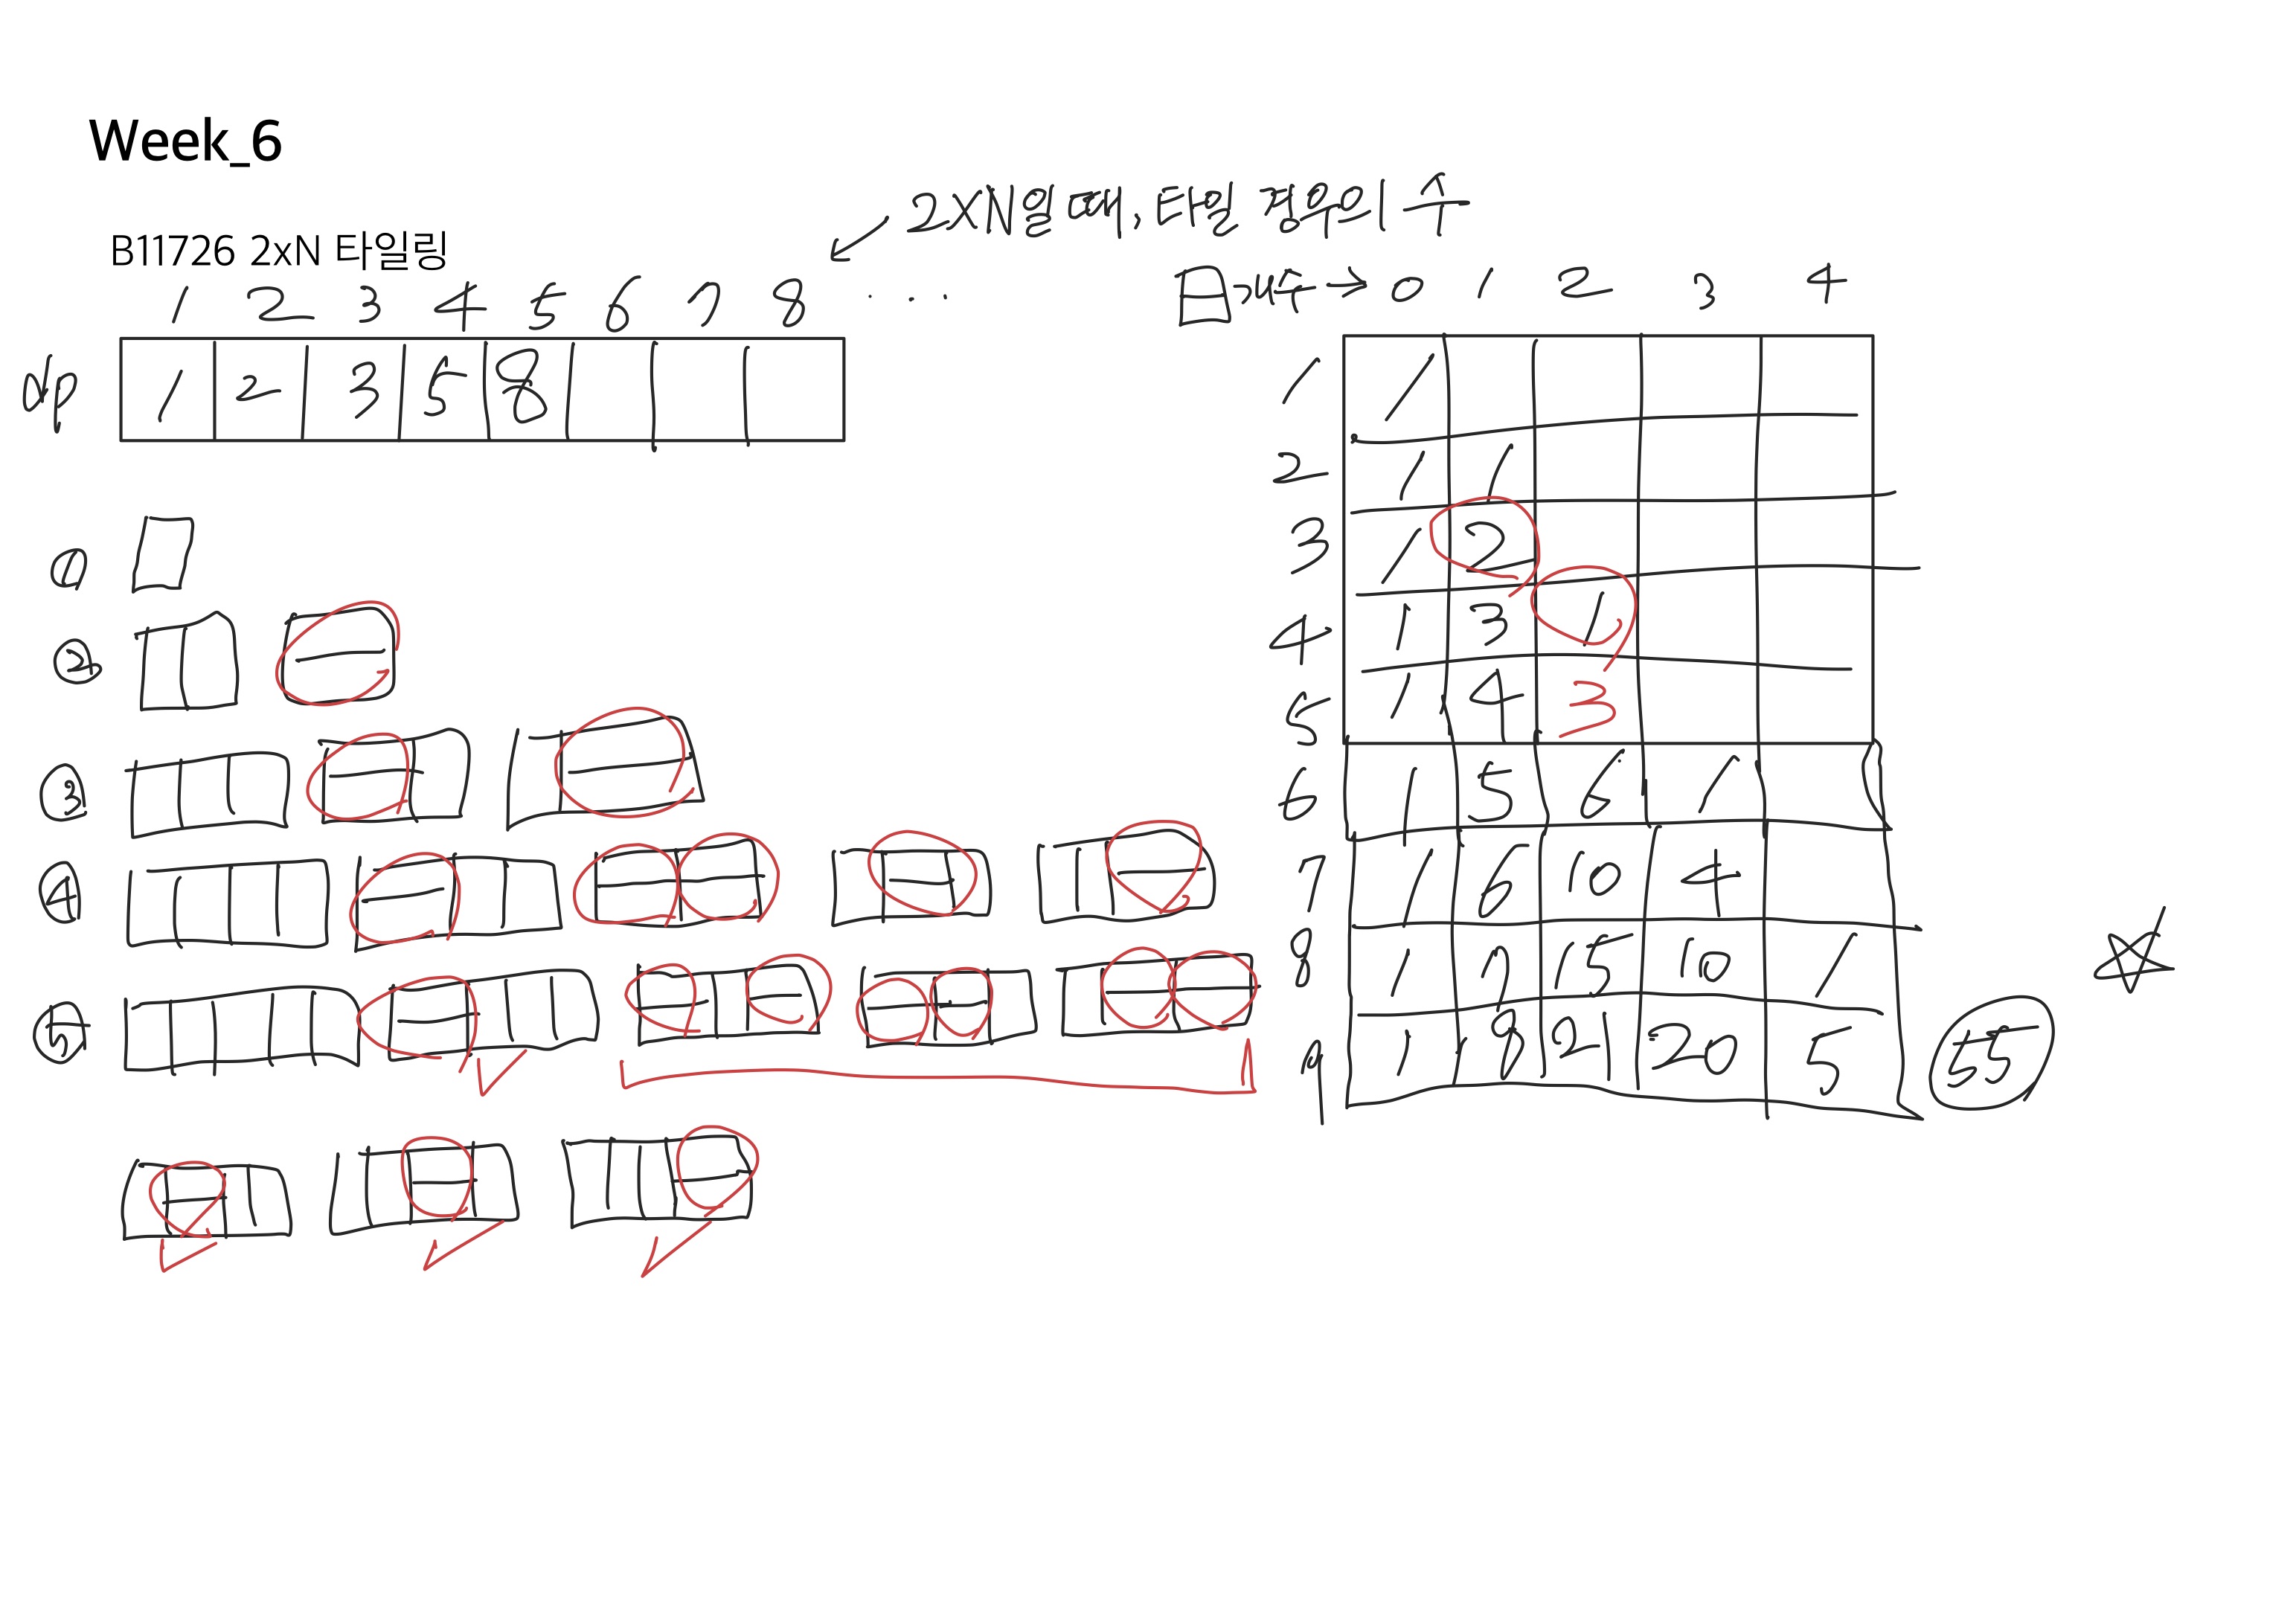 Week_6
B11726 2xN 타일링
2xN일 때, 타일 경우의 수
1 2 3 4 5 6 7 8 ...
dp 1 2 3 5 8
개수 → 0 1 2 3 4
1 1
2 1 1
3 1 2
4 1 3 1
5 1 4 3
6 1 5 6 1
7 1 6 10 4
8 1 7 15 10 1
9 1 8 21 20 5 55
①
②
③
④
⑤